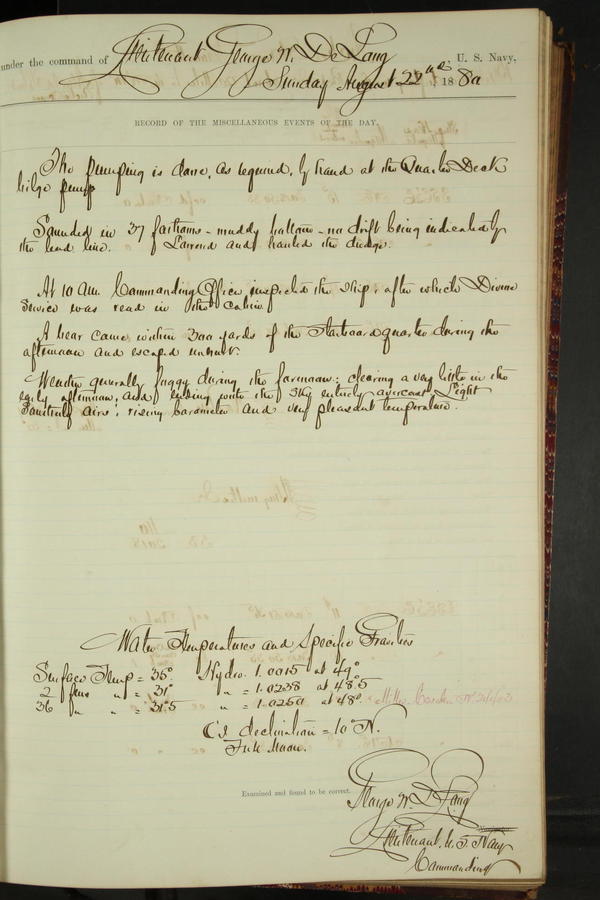 under the command of Lieutenant George W. De Long, U. S. Navy,
Sunday August 22nd, 1880
RECORD OF THE MISCELLANEOUS EVENTS OF THE DAY.
The pumping is done, as required, by hand at the Quarter Deck
bilge pump
Sounded in 37 fathoms - muddy bottom - no drift being indicated by
the lead line. Lowered and hauled the dredge.
At 10 A.M. Commanding Officer inspected the ship; after which Divine
Service was read in the cabin
A bear came within 300 yards of the starboard quarter during the
afternoon and escaped unhurt.
Weather generally foggy during the forenoon; clearing a very little in the
early afternoon; and ending with the sky entirely overcast. Light
Southerly airs; rising barometer and very pleasant temperature.
Water Temperatures and Specific Gravities
Surface Temp = 35° Hydro. 1.0015 at 49°
2 fms " = 31° " = 1.0238 at 48°.5
36 " " = 31°.5 " = 1.0250 at 48°.
C's declination = 10° N.
Full Moon.
Examined and found to be correct.
George W. De Long
Lieutenant, U. S. Navy
Commanding